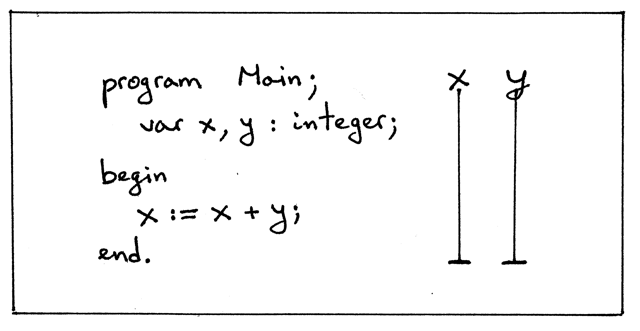 program Main; x y
var x, y : integer;
begin
x := x + y;
end.